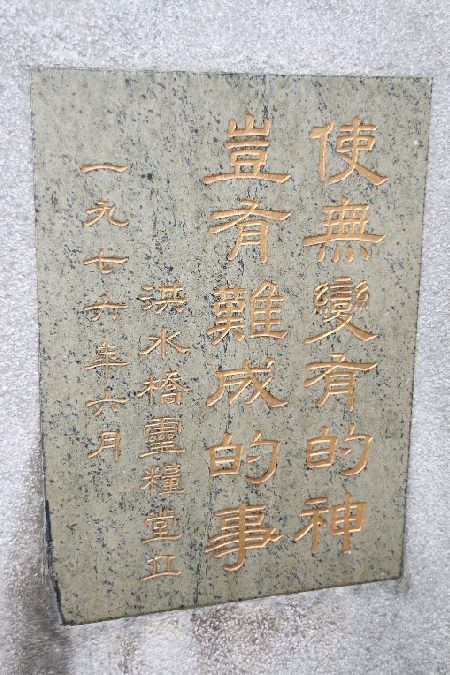 使無變有的神
豈有難成的事
洪水橋靈糧堂立
一九七六年六月